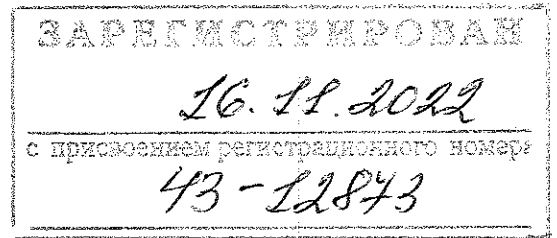 ЗАРЕГИСТРИРОВАН
16.11.2022
с присвоением регистрационного номера
43-12873